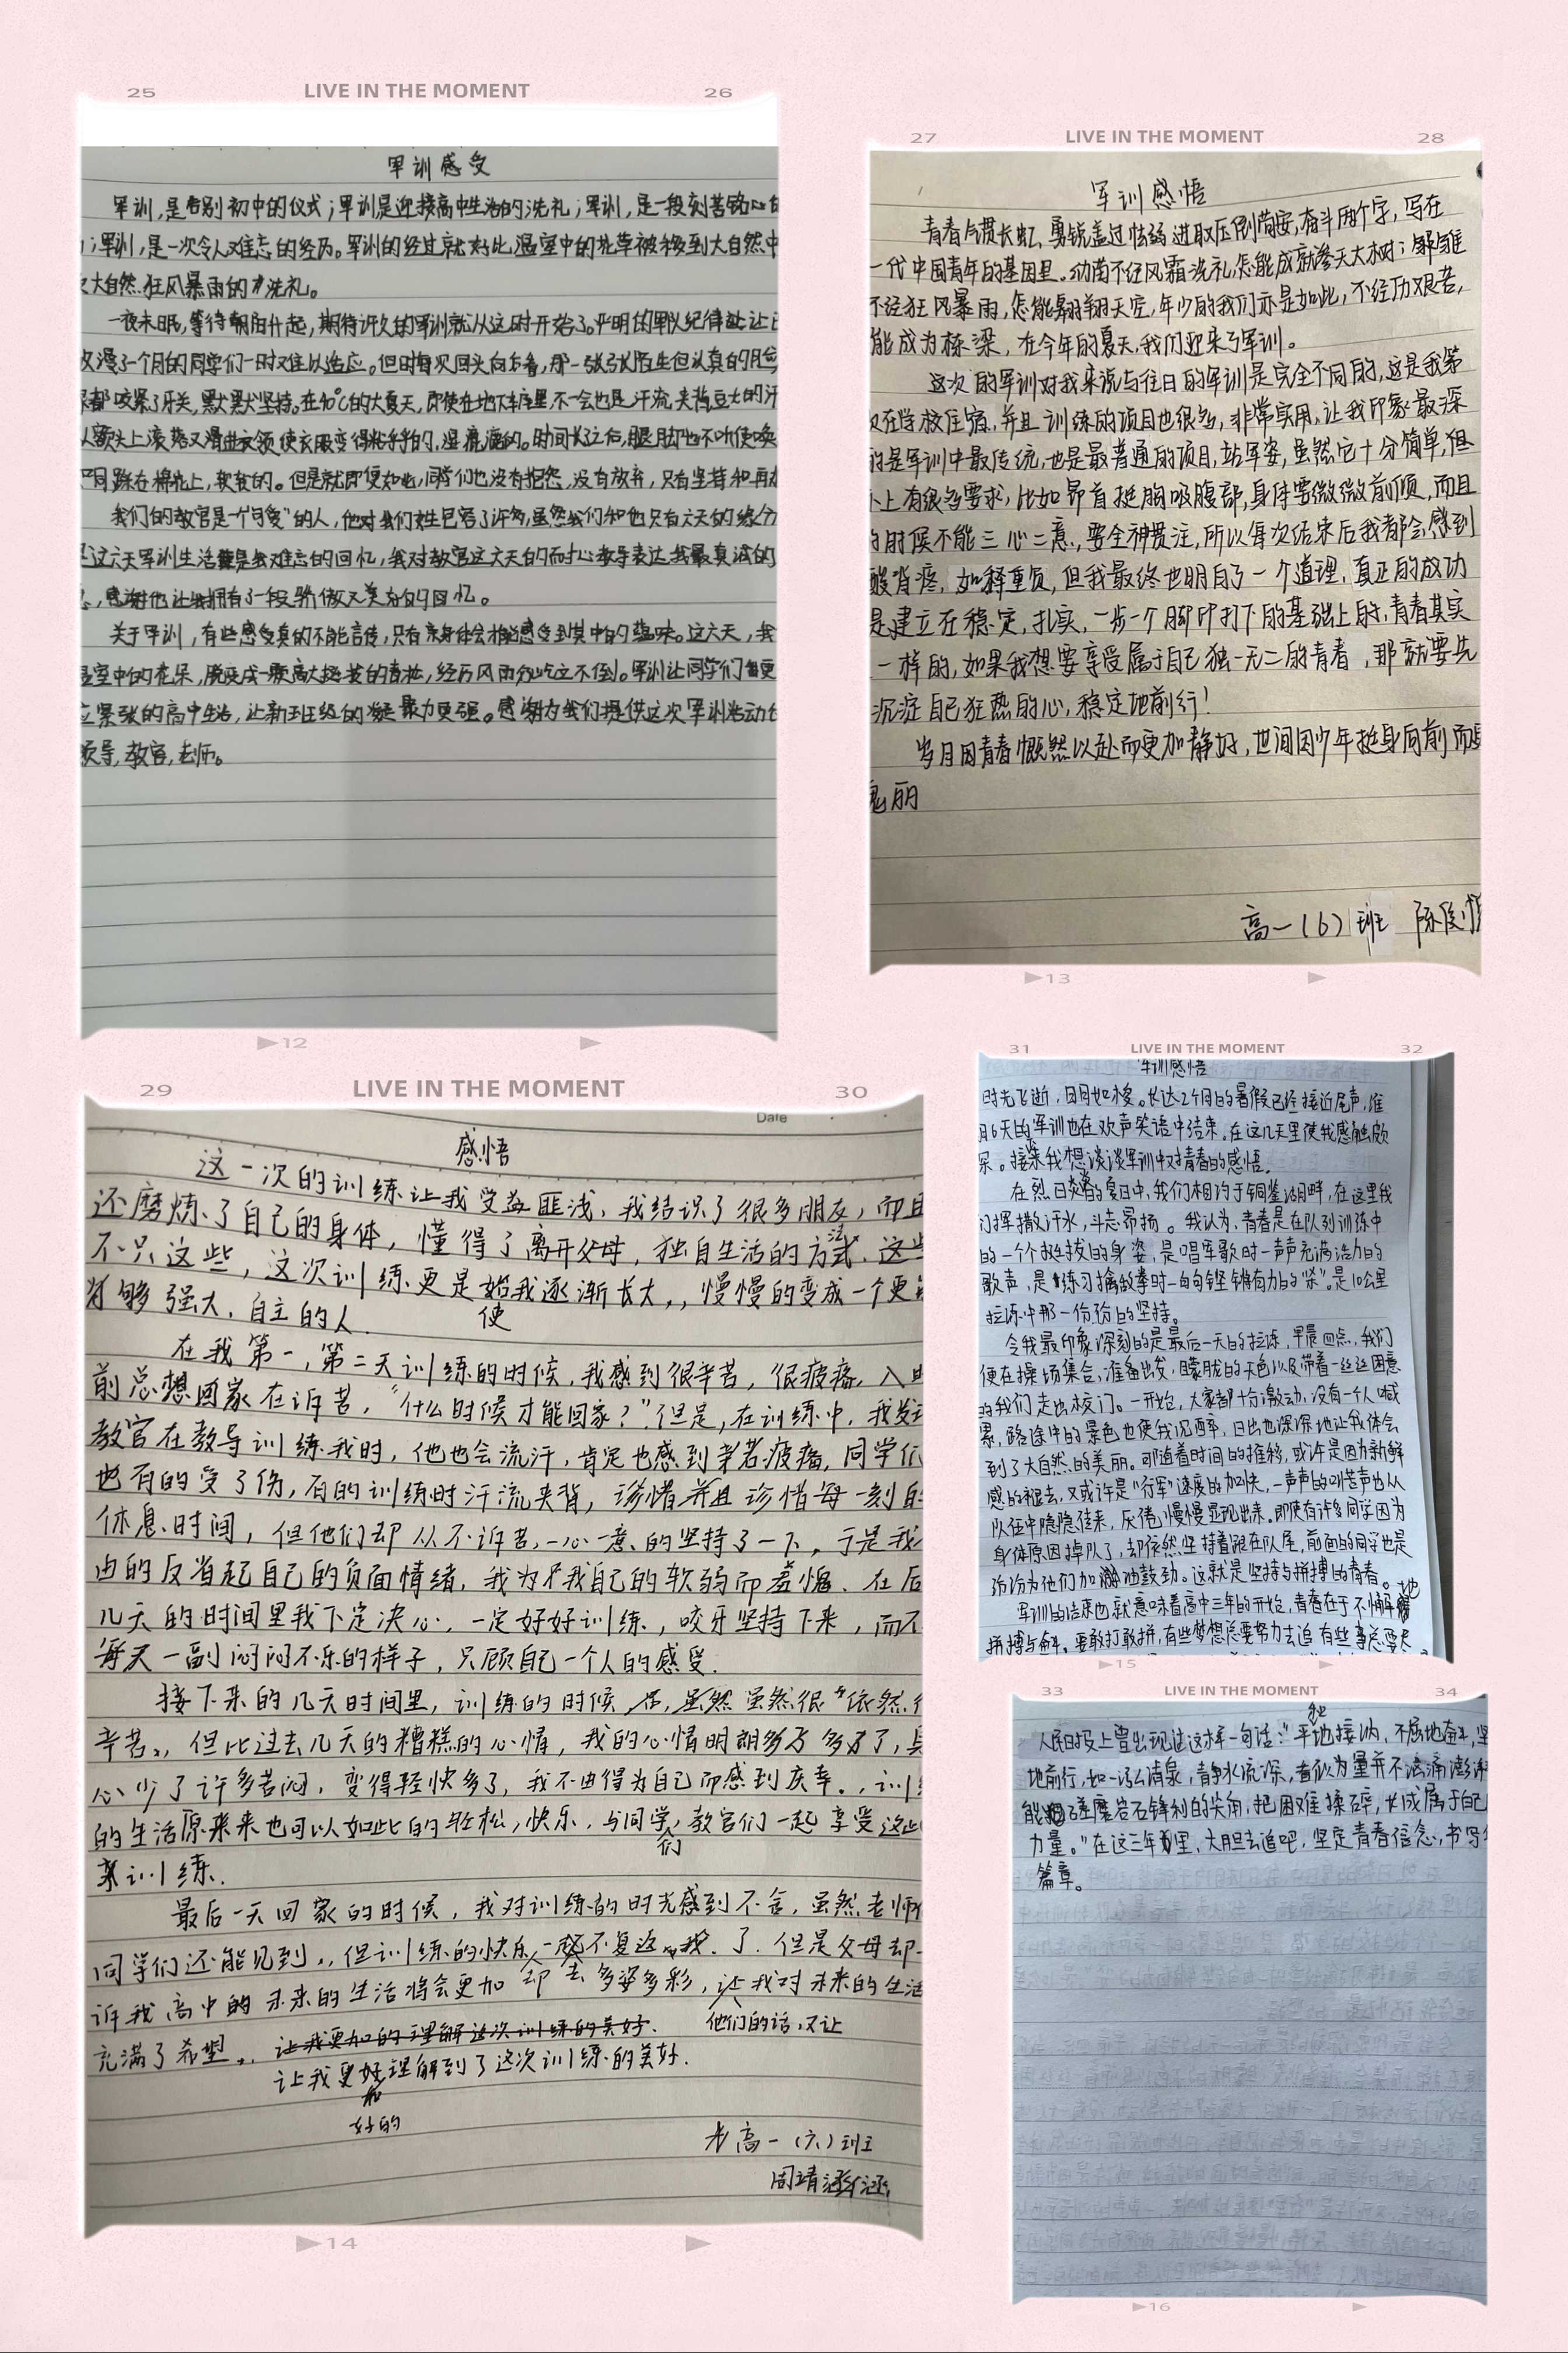 25 LIVE IN THE MOMENT 26
军训感受
军训,是告别初中的仪式;军训是迎接高中生活的洗礼;军训,是一段刻苦铭心的
;军训,是一次令人难忘的经历。军训的经过就好比温室中的花草被移到大自然中
大自然狂风暴雨的洗礼。
一夜未眠,等待朝阳升起,期待许久的军训就从这时开始了。严明的军队纪律让
漫了一个月的同学们一时难以适应。但每次回头向后看,那一张张陌生但认真的脸
都咬紧了牙关,默默坚持。在40℃的大夏天,即使在地下车库里不一会也是汗流夹背豆大的汗
额头上滚落又滑进衣领使衣服变得粘乎乎的,湿漉漉的。时间长之后,腿脚也不听使唤
同踩在棉花上,软软的。但是就即便如此,同学们也没有抱怨,没有放弃,只有坚持和再
我们的教官是一个"可爱"的人,他对我们女生包容了许多,虽然我们和他只有六天的缘分
这六天军训生活是我难忘的回忆,我对教官这六天的耐心教导表达我最真诚的
,感谢他让我拥有了一段骄傲又美好的回忆。
关于军训,有些感受真的不能言传,只有亲身体会才能感受到其中的韵味。这六天,我
室中的花朵,脱变成一颗高大挺拔的青松,经历风雨却屹立不倒。军训让同学们更
紧张的高中生活,让新班级的凝聚力更强。感谢为我们提供这次军训活动
领导,教官,老师。
12
27 LIVE IN THE MOMENT 28
军训感悟
青春气贯长虹,勇锐盖过怯弱,进取压倒苟安,奋斗两个字,写在
一代中国青年的基因里。幼苗不经风霜洗礼,怎能成就参天大树;雏雕
不经狂风暴雨,怎能翱翔天空,年少的我们亦是如此,不经历艰苦,
能成为栋梁,在今年的夏天,我们迎来了军训。
这次的军训对我来说与往日的军训是完全不同的,这是我第
次在学校住宿,并且训练的项目也很多,非常实用,让我印象最深
的是军训中最传统,也是最普通的项目,站军姿,虽然它十分简单,但
上有很多要求,比如昂首挺胸吸腹部,身体要微微前倾,而且
的时候不能三心二意,要全神贯注,所以每次结束后我都会感到
酸背疼,如释重负,但我最终也明白了一个道理,真正的成功
是建立在稳定,扎实,一步一个脚印打下的基础上的,青春其实
一样的,如果我想要享受属于自己独一无二的青春,那就要先
沉淀自己狂热的心,稳定地前行!
岁月因青春慨然以赴而更加静好,世间因少年挺身向前而更
瑰丽
高一(6)班 陈
13
29 LIVE IN THE MOMENT 30
Date
感悟
这一次的训练让我受益匪浅,我结识了很多朋友,而且
还磨炼了自己的身体,懂得了离开父母,独自生活的方式法。这些
不只这些,这次训练更是使我逐渐长大,慢慢的变成一个更
能够强大,自主的人。
在我第一,第二天训练的时候,我感到很辛苦,很疲惫,入
前总想回家在诉苦,"什么时候才能回家?"但是,在训练中,我发
教官在教导训练我时,他也会流汗,肯定也感到辛苦疲惫,同学们
也有的受了伤,有的训练时汗流夹背,珍惜并且珍惜每一刻的
休息时间,但他们却从不诉苦,一心一意的坚持了一下,于是我
由的反省起自己的负面情绪,我为我自己的软弱而羞愧,在后
几天的时间里我下定决心,一定好好训练,咬牙坚持下来,而不
每天一副闷闷不乐的样子,只顾自己一个人的感受。
接下来的几天时间里,训练的时候,虽然虽然很"依然很
辛苦。,但比过去几天的糟糕的心情,我的心情明朗多了多了,
心少了许多苦闷,变得轻快多了,我不由得为自己而感到庆幸。,训
的生活原来来也可以如此的轻松,快乐,与同学们,教官们一起享受这些
来训练。
最后一天回家的时候,我对训练的时光感到不舍,虽然老师
同学们还能见到,但训练的快乐却一去不复返了,但是父母却
诉我高中的未来的生活将会更加多姿多彩,他们的话,又让我对未来的生活
充满了希望。让我更加的理解这次训练的美好。
让我更好的理解到了这次训练的美好。
高一(六)班
周靖涵
14
31 LIVE IN THE MOMENT 32
军训感悟
时光飞逝,日月如梭。长达2个月的暑假已经接近尾声,
6天的军训也在欢声笑语中结束。在这几天里使我感触颇
深。接下来我想谈谈军训中对青春的感悟。
在烈日炎炎的夏日中,我们相约于铜鉴湖畔,在这里我
们挥撒汗水,斗志昂扬。我认为,青春是在队列训练中
的一个个挺拔的身姿,是唱军歌时一声声充满活力的
歌声,是练习擒敌拳时一句句铿锵有力的"杀"。是10公里
拉练中那一份份的坚持。
令我最印象深刻的是最后一天的拉练,早晨四点,我们
便在操场集合,准备出发,朦胧的天色以及带着一丝丝困意
的我们走出校门。一开始,大家都十分激动,没有一个人喊
累,路途中的景色也使我沉醉,日出也深深地让我体会
到了大自然的美丽。可随着时间的推移,或许是因为新鲜
感的褪去,又或许是"行军"速度的加快,一声声的叫苦声也从
队伍中隐隐传来,厌倦也慢慢显现出来。即使有许多同学因为
身体原因掉队了,却依然坚持着跟在队尾,前面的同学也是
纷纷为他们加油鼓劲。这就是坚持与拼搏的青春。
军训的结束也就意味着高中三年的开始,青春在于不懈地
拼搏与奋斗。要敢打敢拼,有些梦想总要努力去追,有些事总要尽
15
33 LIVE IN THE MOMENT 34
人民日报上曾出现过这样一句话:"平和地接纳,不屈地奋斗,坚
地前行,如一泓清泉,静水流深,看似力量并不滂湃澎湃
能磋磨岩石锋利的尖角,把困难揉碎,长成属于自己
力量。"在这三年里,大胆去追吧,坚定青春信念,书写
篇章。
16